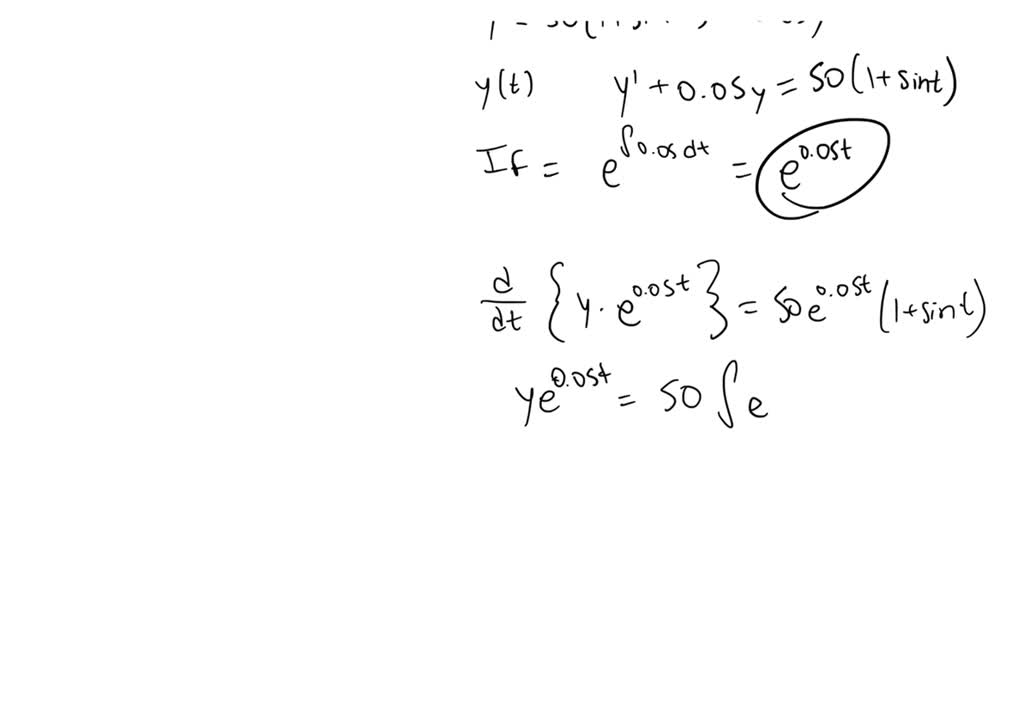 y(t) y' + 0.05y = 50(1+sint)
If = e^∫0.05dt = e^0.05t
d/dt {y · e^0.05t} = 50e^0.05t (1+sint)
ye^0.05t = 50 ∫e